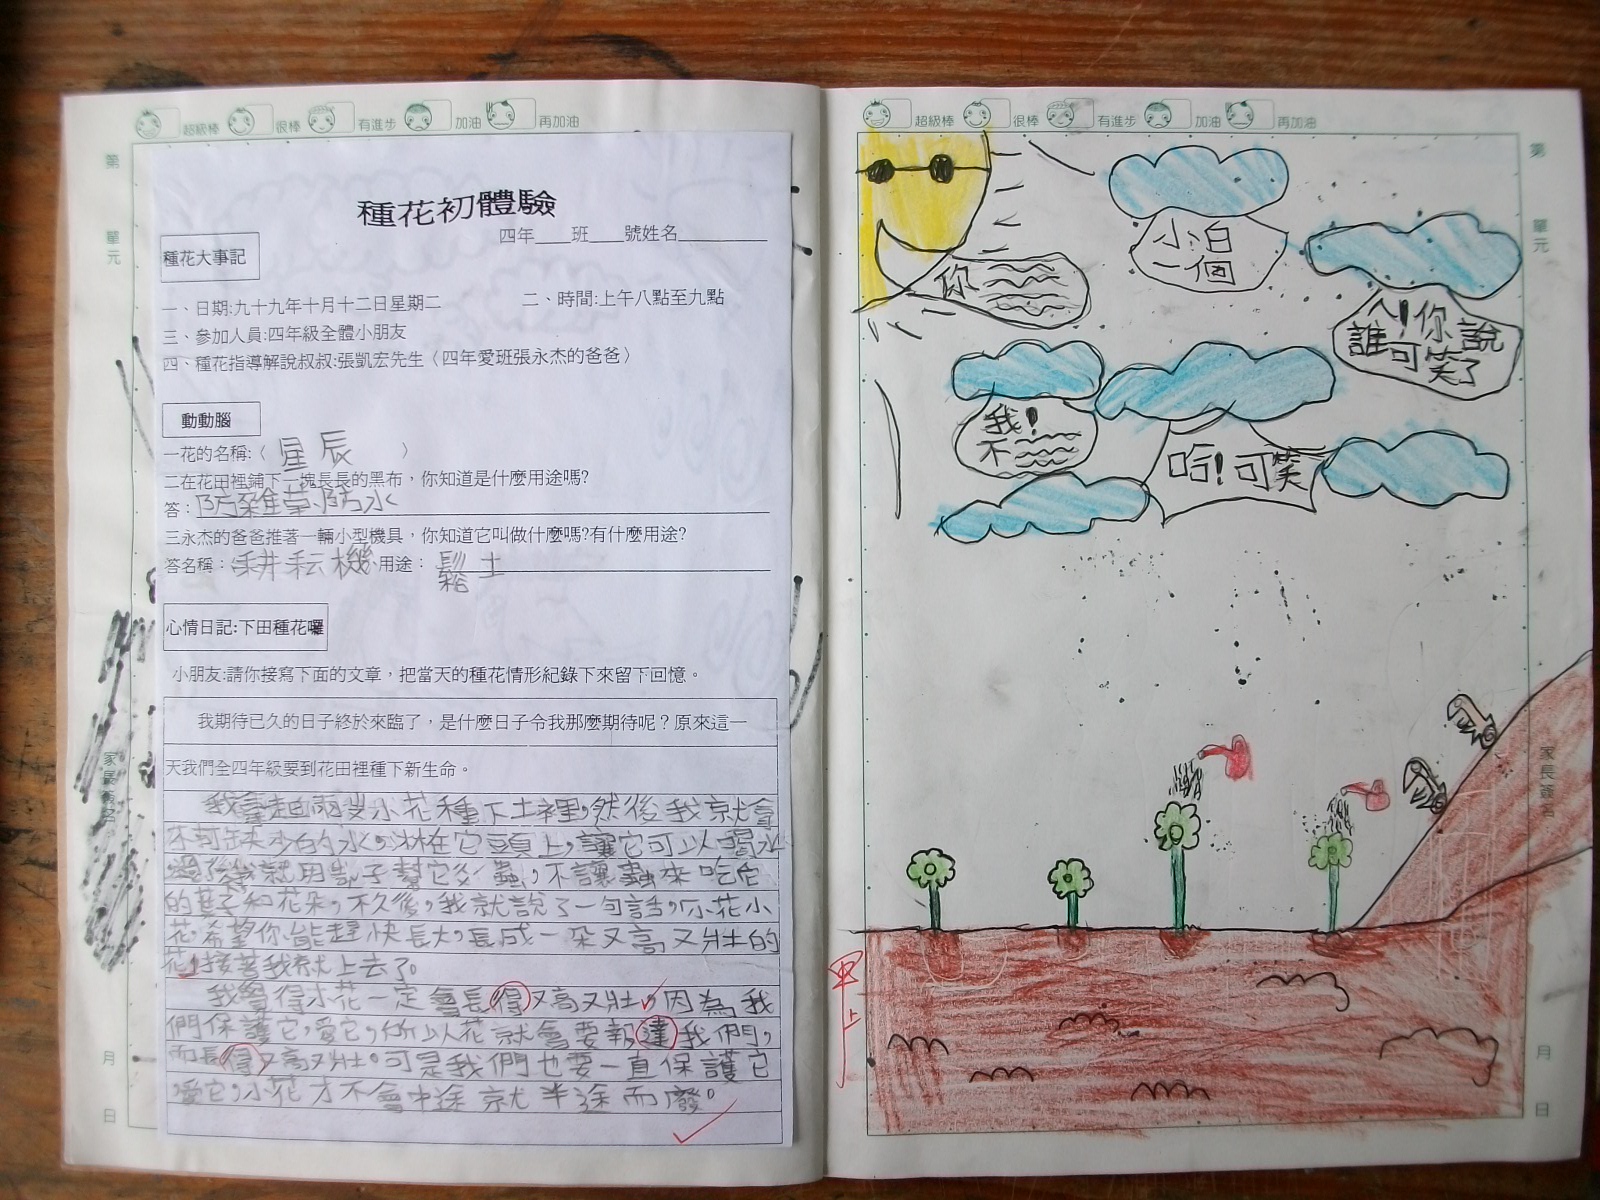 超級棒 很棒 有進步 加油 再加油
第 單元
種花初體驗
四年____班____號姓名________
種花大事記
一、日期:九十九年十月十二日星期二 二、時間:上午八點至九點
三、參加人員:四年級全體小朋友
四、種花指導解說叔叔:張凱宏先生〈四年愛班張永杰的爸爸〉
動動腦
一花的名稱:〈星辰〉
二在花田裡鋪下一塊長長的黑布，你知道是什麼用途嗎?
答：防雜草、防水
三永杰的爸爸推著一輛小型機具，你知道它叫做什麼嗎?有什麼用途?
答名稱：耕耘機 用途：鬆土
心情日記:下田種花囉
小朋友:請你接寫下面的文章，把當天的種花情形紀錄下來留下回憶。
我期待已久的日子終於來臨了，是什麼日子令我那麼期待呢？原來這一
天我們全四年級要到花田裡種下新生命。
我拿起小花種下土裡，然後我就拿
不可缺少的水，淋在它頭上，讓它可以喝水
我就用子幫它蟲，不讓蟲來吃它
的葉子和花朵，不久後，我就說了一句話，小花小
花，希望你能趕快長大，長成一朵又高又壯的
花，接著我就上去了。
我覺得小花一定會長得又高又壯，因為我
們保護它，愛它，所以花就會要報達我們，
而長得又高又壯。可是我們也要一直保護它
，愛它，小花才不會中途就半途而廢。
家長簽名
月 日
超級棒 很棒 有進步 加油 再加油
第 單元
小白
一個
你
你說
誰可笑了
我！
不
哈！可笑
甲上
家長簽名
月 日